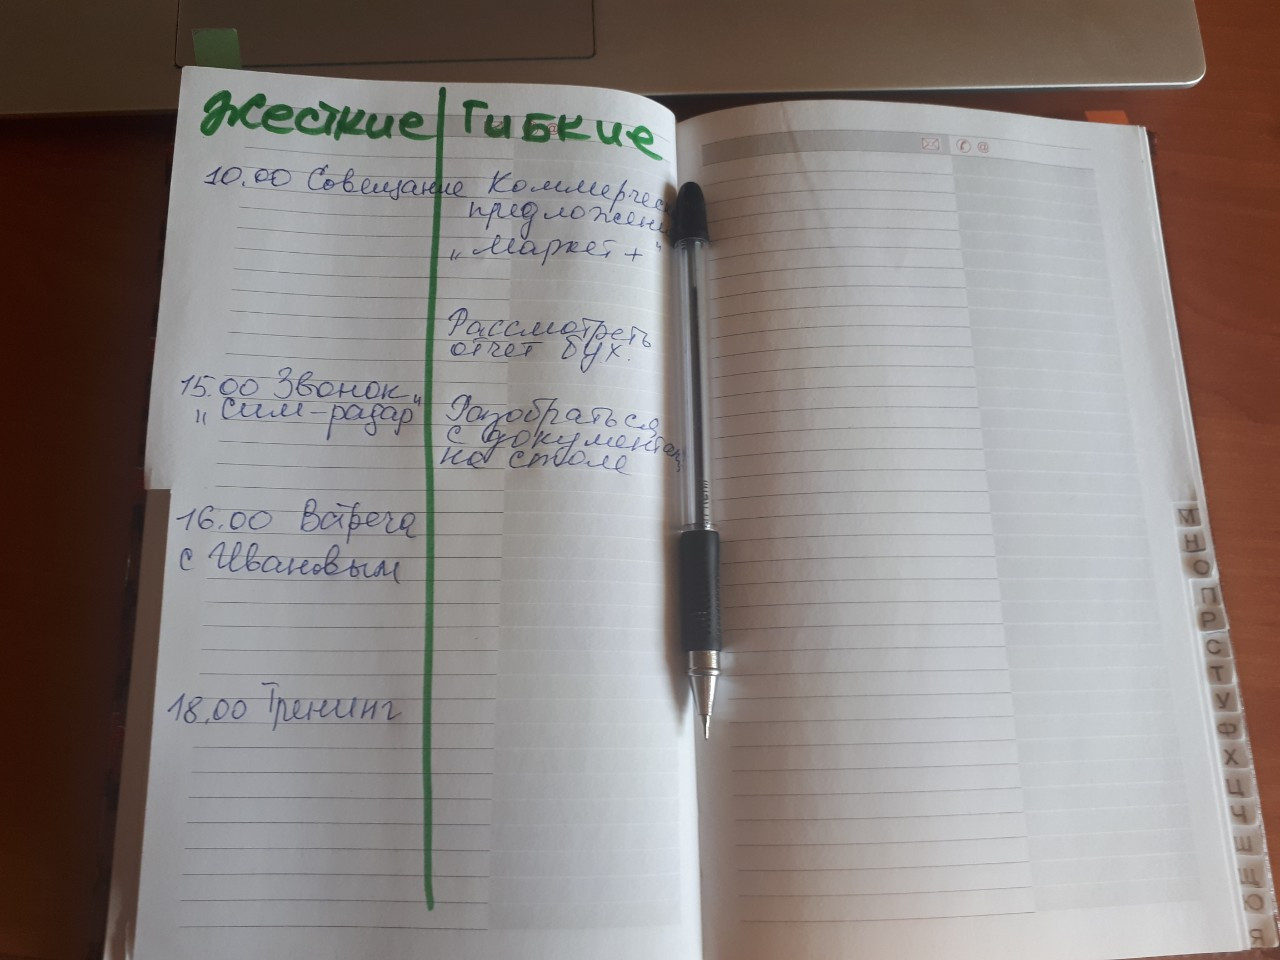 Жесткие
10.00 Совещание
15.00 Звонок
"Сим-радар"
16.00 Встреча
с Ивановым
18.00 Тренинг
Гибкие
"Маркет +"
Рассмотреть
отчет бух.
Разобраться
с
на столе
@
М
Н
О
П
Р
С
Т
У
Ф
Х
Ц
Ч
Ш
Щ
Ю
Я